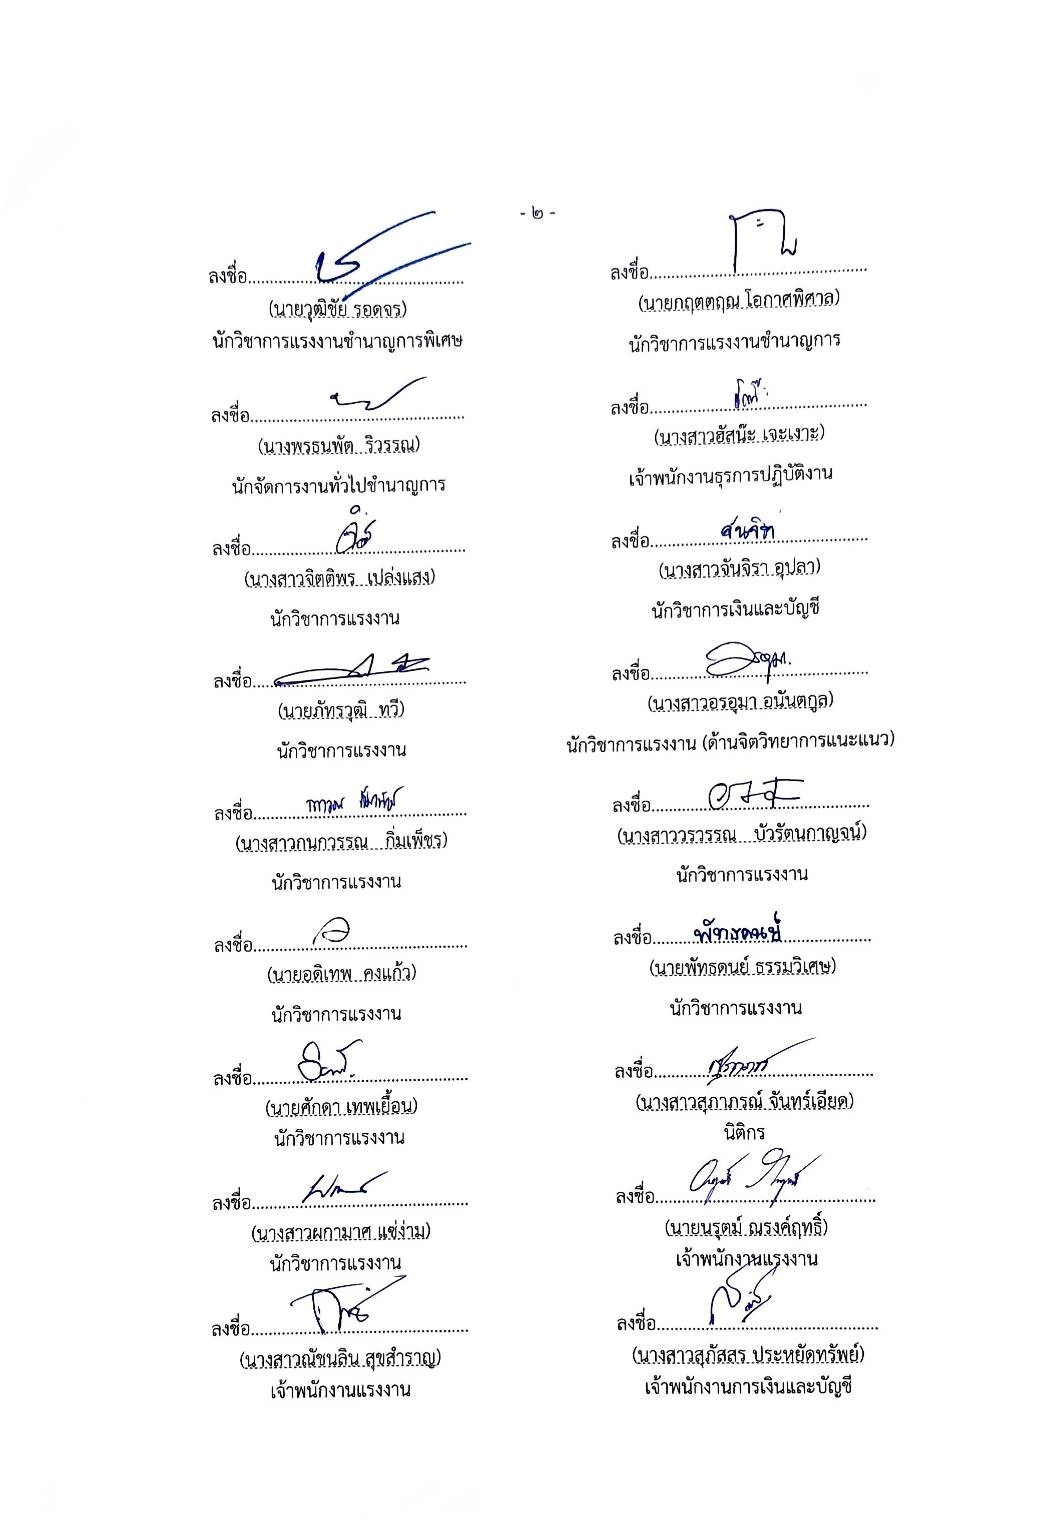 - ๒ -
ลงชื่อ
(นายวุฒิชัย รอดจร)
นักวิชาการแรงงานชำนาญการพิเศษ
ลงชื่อ
(นายกฤตตฤณ โอกาศพิศาล)
นักวิชาการแรงงานชำนาญการ
ลงชื่อ
(นางพรธนพัต ริวรรณ)
นักจัดการงานทั่วไปชำนาญการ
ลงชื่อ
(นางสาวฮัสน๊ะ เจะเงาะ)
เจ้าพนักงานธุรการปฏิบัติงาน
ลงชื่อ
(นางสาวจิตติพร เปล่งแสง)
นักวิชาการแรงงาน
ลงชื่อ
(นางสาวจันจิรา อุปลา)
นักวิชาการเงินและบัญชี
ลงชื่อ
(นายภัทรวุฒิ ทวี)
นักวิชาการแรงงาน
ลงชื่อ
(นางสาวอรอุมา อนันตกูล)
นักวิชาการแรงงาน (ด้านจิตวิทยาการแนะแนว)
ลงชื่อ
(นางสาวกนกวรรณ กิ่มเพ็ชร)
นักวิชาการแรงงาน
ลงชื่อ
(นางสาววรวรรณ บัวรัตนกาญจน์)
นักวิชาการแรงงาน
ลงชื่อ
(นายอดิเทพ คงแก้ว)
นักวิชาการแรงงาน
ลงชื่อ พัทธดนย์
(นายพัทธดนย์ ธรรมวิเศษ)
นักวิชาการแรงงาน
ลงชื่อ
(นายศักดา เทพเยื้อน)
นักวิชาการแรงงาน
ลงชื่อ
(นางสาวสุภาภรณ์ จันทร์เอียด)
นิติกร
ลงชื่อ
(นางสาวผกามาศ แซ่ง่าม)
นักวิชาการแรงงาน
ลงชื่อ
(นายนรุตม์ ณรงค์ฤทธิ์)
เจ้าพนักงานแรงงาน
ลงชื่อ
(นางสาวณัชนลิน สุขสำราญ)
เจ้าพนักงานแรงงาน
ลงชื่อ
(นางสาวสุภัสสร ประหยัดทรัพย์)
เจ้าพนักงานการเงินและบัญชี